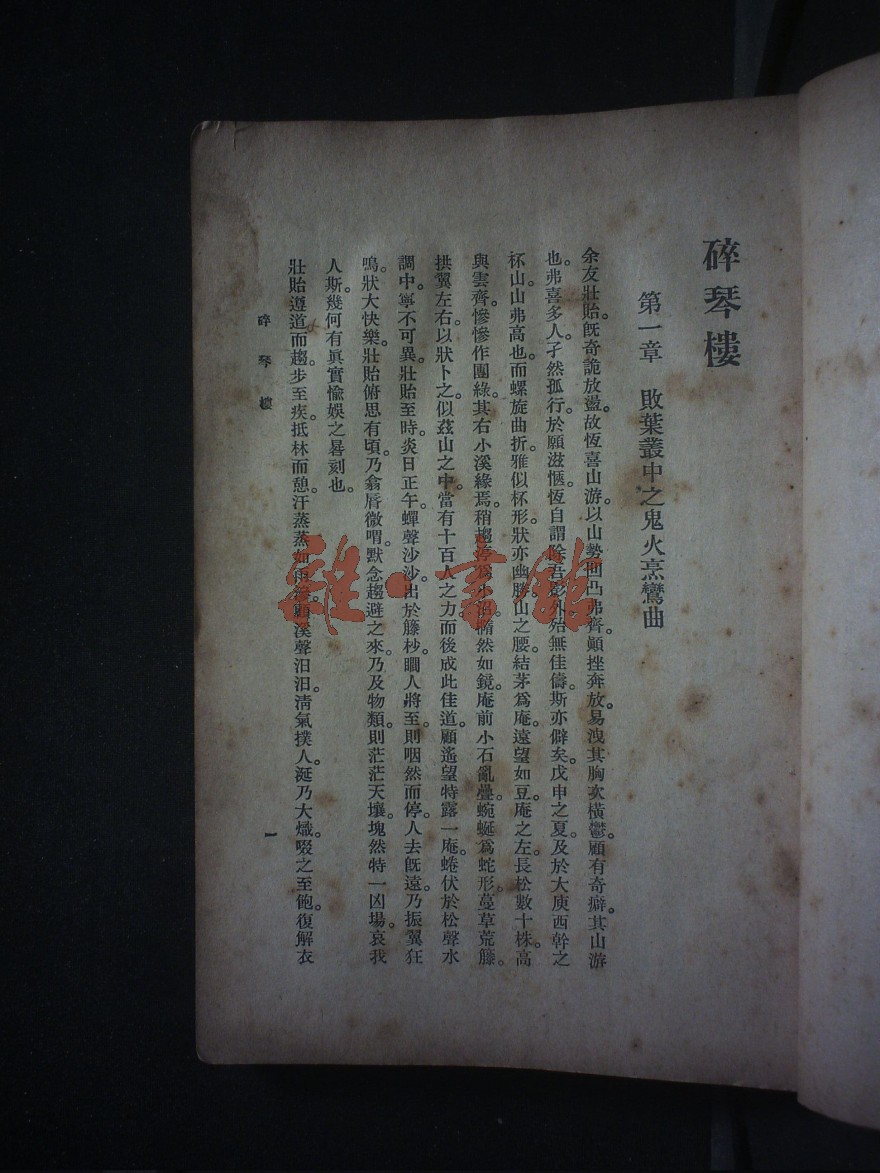 碎琴樓
第一章　敗葉叢中之鬼火烹鸞曲
余友壯貽。旣奇詭放盪。故恆喜山游。以山勢凹凸弗齊。顚挫奔放。易洩其胸次橫鬱。顧有奇癖。其山游
也。弗喜多人。孑然孤行。於願滋愜。恆自謂除吾影外。殆無佳儔。斯亦僻矣。戊申之夏。及於大庾西幹之
杯山。山弗高也。而螺旋曲折。雅似杯形。狀亦幽勝。山之腰。結茅爲庵。遠望如豆。庵之左。長松數十株。高
與雲齊。慘慘作團綠。其右小溪緣焉。稍趨爲小沼。橢然如鏡。庵前小石亂疊。蜿蜒爲蛇形。蔓草荒籐。
拱翼左右。以狀卜之。似茲山之中。當有十百人之力而後成此佳道。顧遙望特露一庵。蜷伏於松聲水
調中。寧不可異。壯貽至時。炎日正午。蟬聲沙沙。出於籐杪。瞷人將至。則咽然而停。人去旣遠。乃振翼狂
鳴。狀大快樂。壯貽俯思有頃。乃翕唇微喟。默念趨避之來。乃及物類。則茫茫天壤。塊然特一凶場。哀我
人斯。幾何有眞實愉娛之晷刻也。
壯貽遵道而趨。步至疾。抵林而憩。汗蒸蒸如雨滲。顧溪聲汨汨。淸氣撲人。涎乃大熾。啜之至飽。復解衣
碎琴樓
一
雜·書館